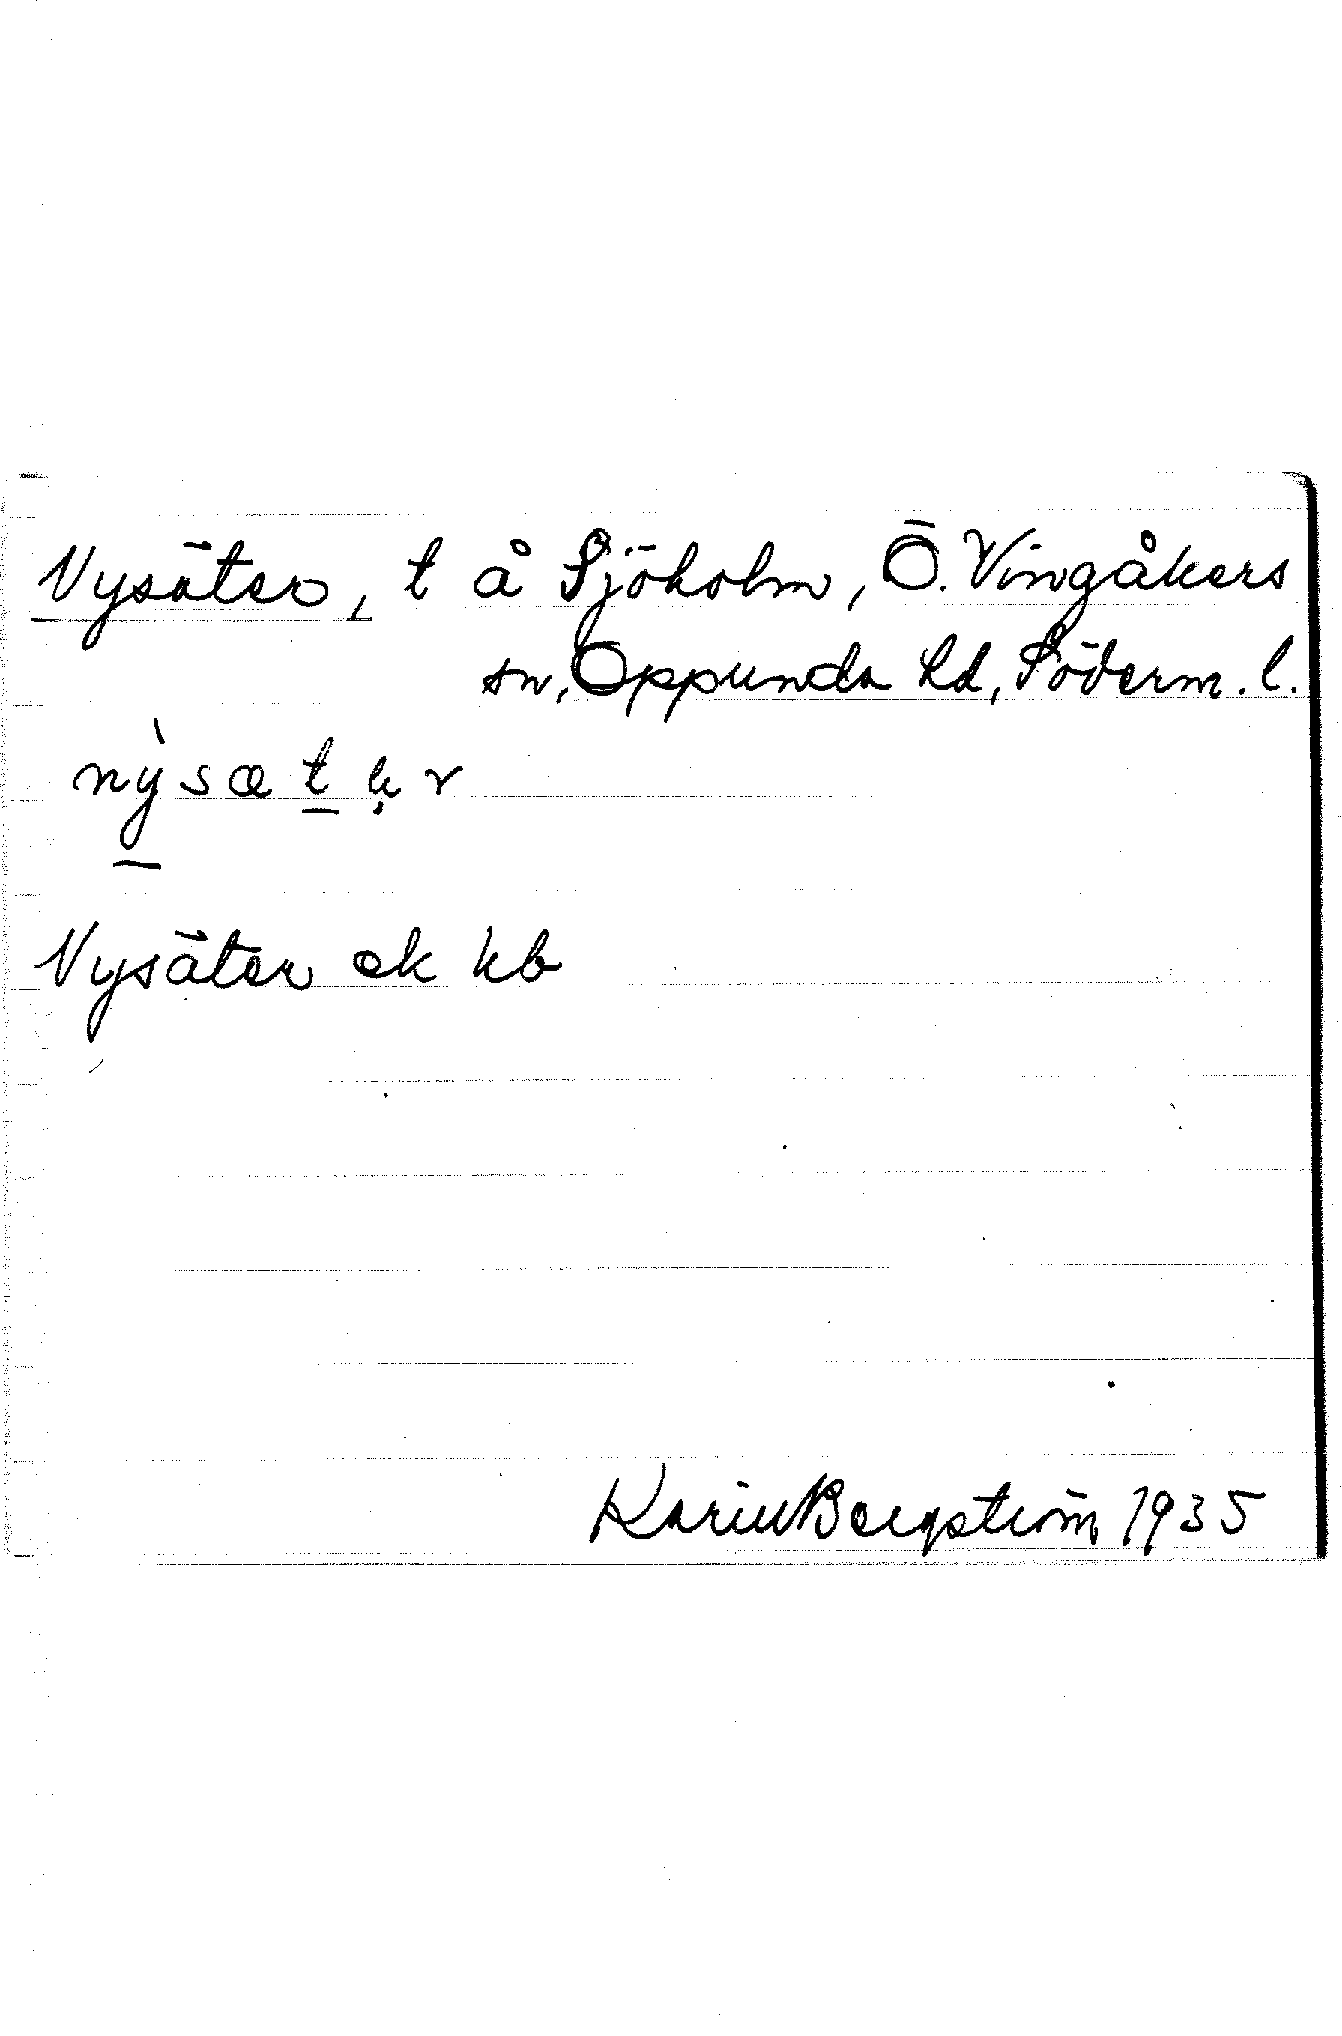 Nysäter, t å Sjöholm, Ö. Vingåkers
sn, Oppunda hd, Söderm. l.
nỳsætər
Nysäter ek kb
Karin Bergström 1935